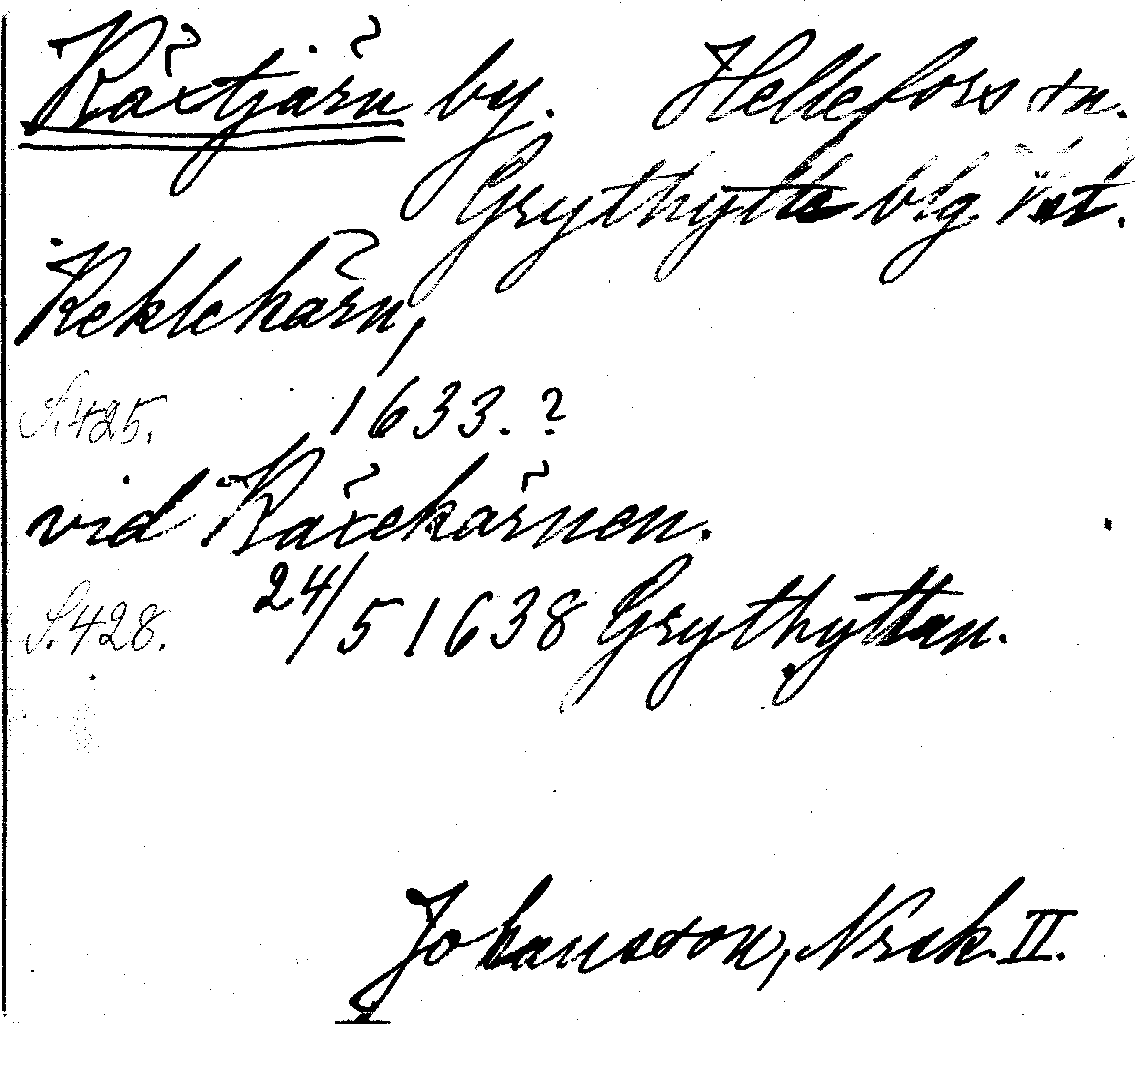 Räxtjärn by. Hellefors sn.
Grythytte blg. Vst.
Reklekärn,
S. 425. 1633.?
vid Räxekärnen.
S. 428. 24/5 1638 Grythyttan.
Johansson, Nrsk. II.